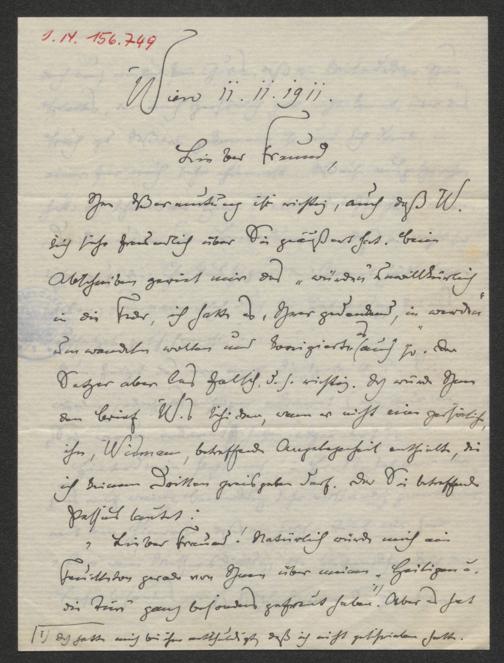 J. N. 156.749
Wien 11. 11. 1911.
Lieber Freund,
Ihre Vermutung ist richtig, auch daß W.
sich sehr freundlich über Sie geäußert hat. Beim
Abschreiben geriet mir das „würden“ unwillkürlich
in die Feder, ich hatte es, Ihrer gedenkend, in „werden“
umwandeln wollen und korrigierte auch so. Der
Setzer aber las falsch, d. h. richtig. Ich würde Ihnen
den Brief W.s schicken, wenn er nicht eine persönliche,
ihn, Widmann, betreffende Angelegenheit enthielte, die
ich keinem Dritten preisgeben darf. Der Sie betreffende
Passus lautet:
„Lieber Freund! Natürlich würde mich ein
Feuilleton gerade von Ihnen über meinen „Heiligen u.
die Tiere“ ganz besonders gefreut haben. 1) Aber es hat
1) Ich hatte mich bei ihm entschuldigt, daß ich nicht geschrieben hatte.